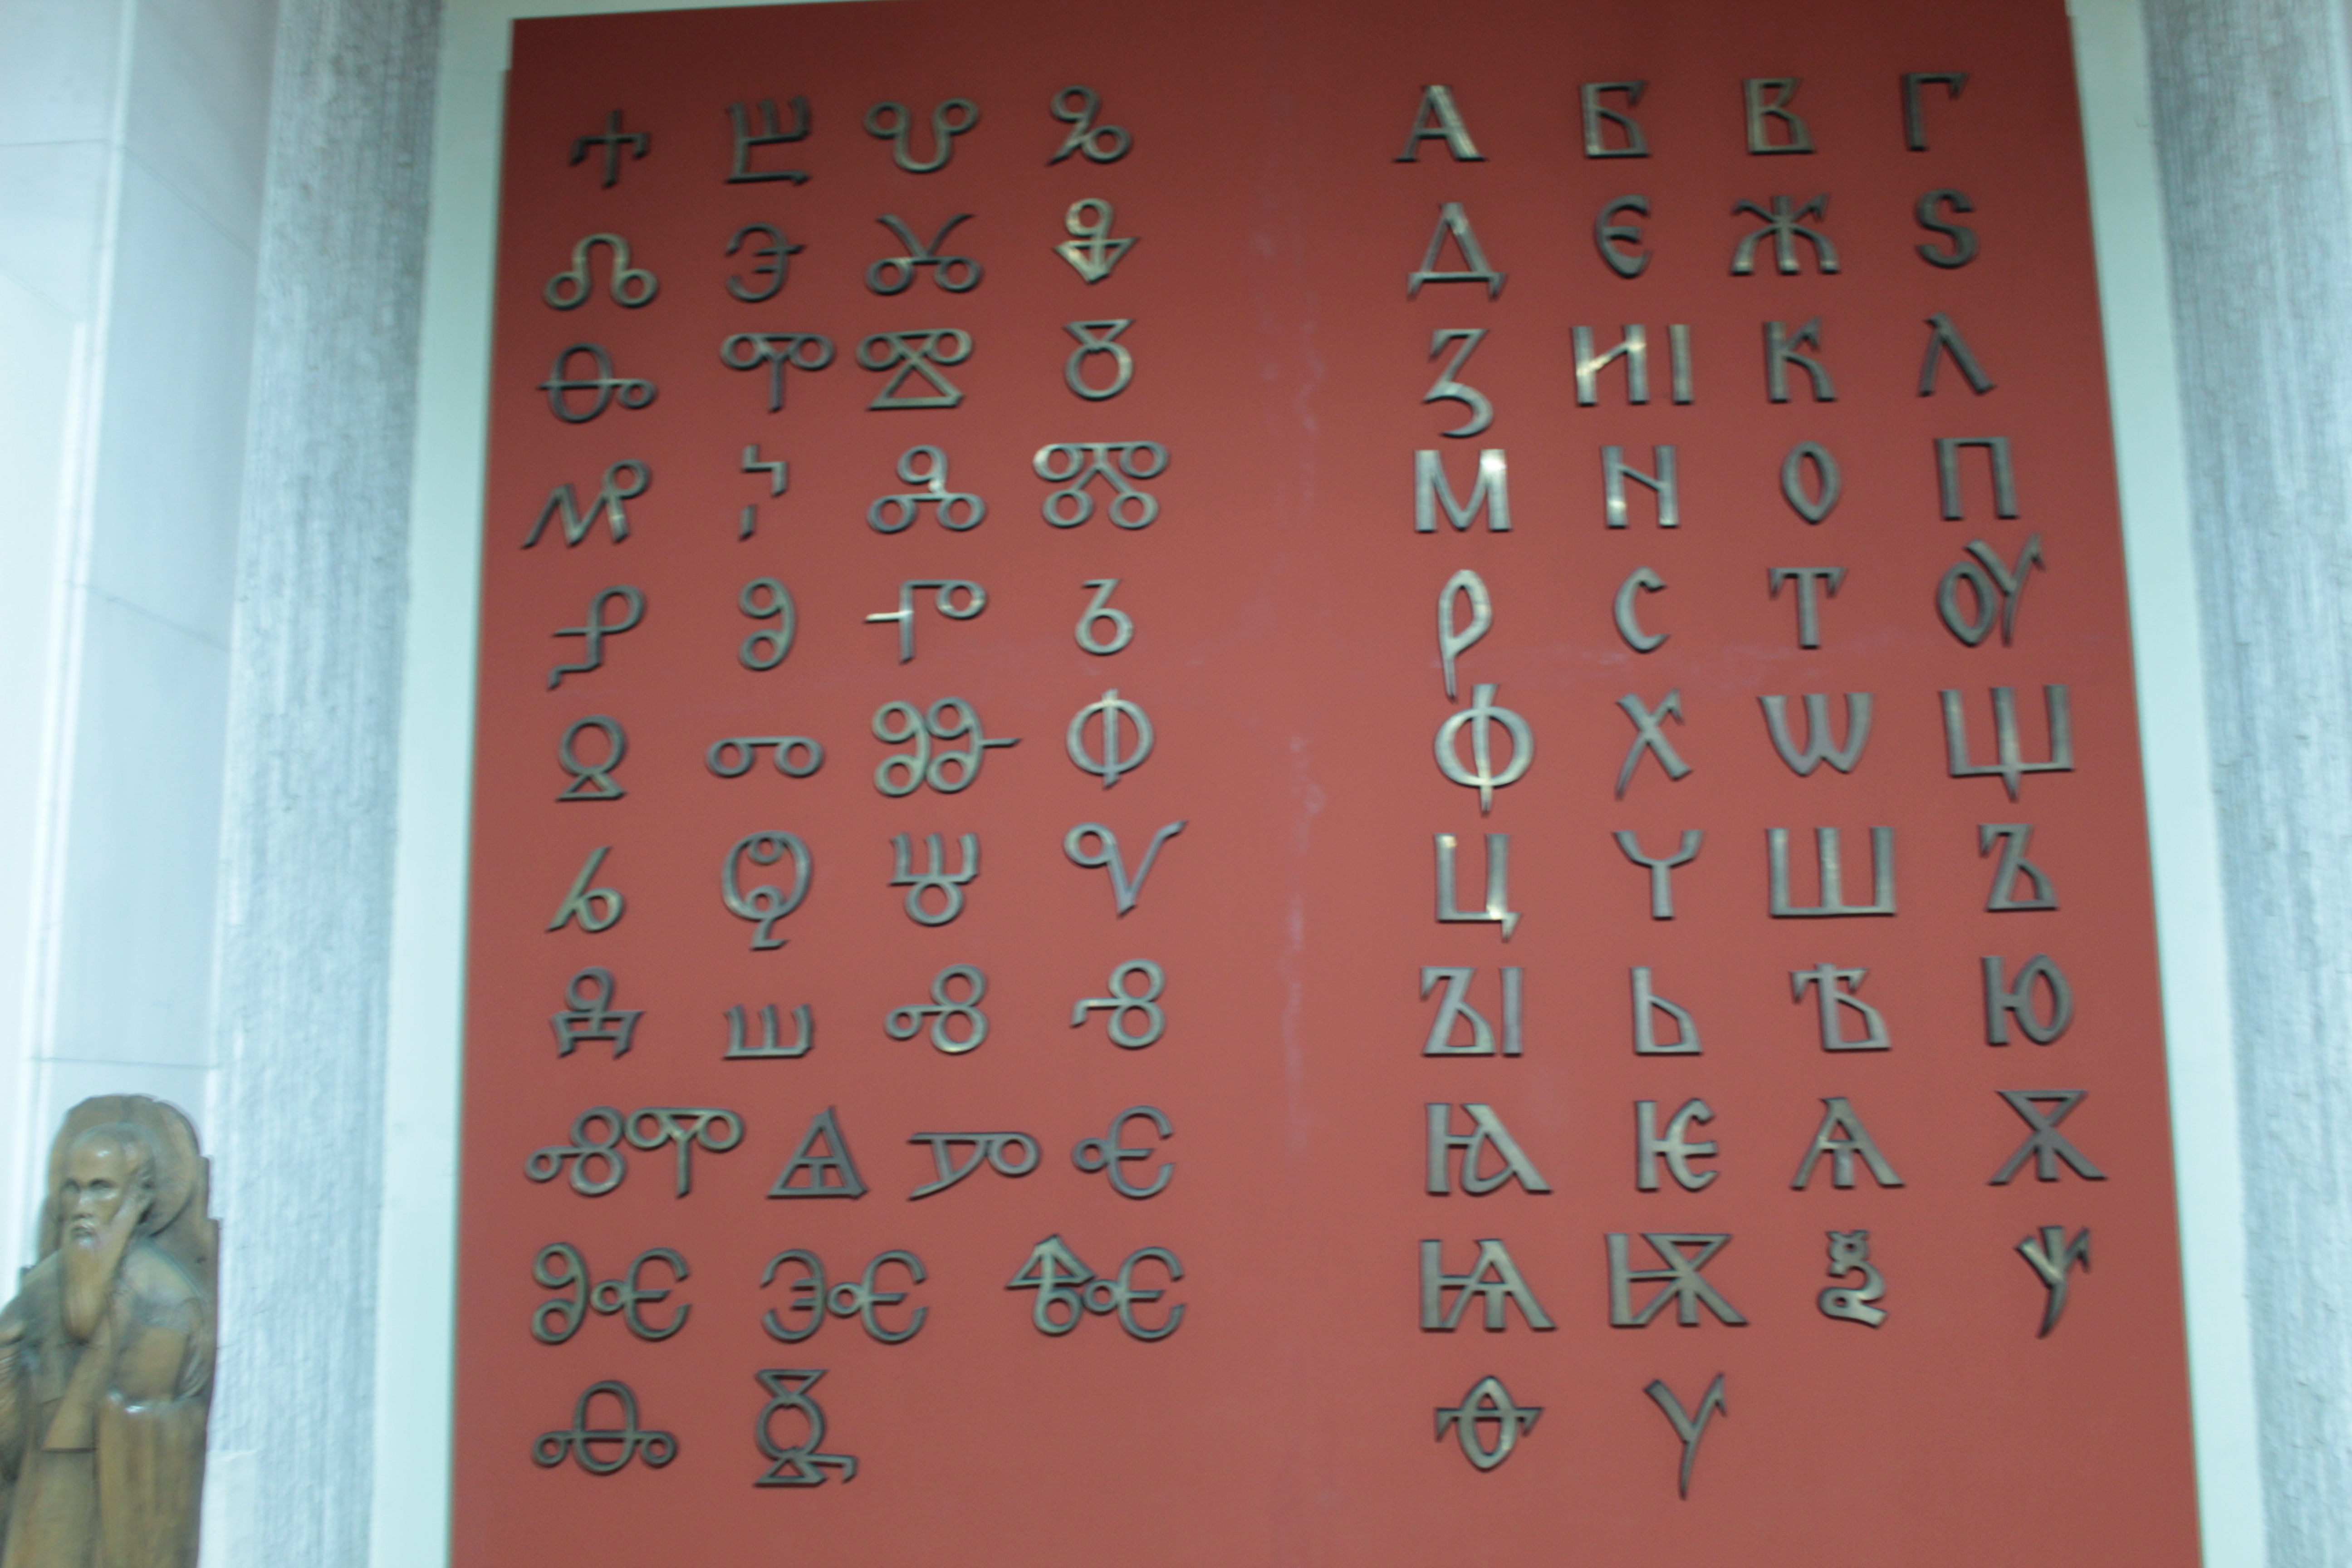 Ⰰ Ⰱ Ⰲ Ⰳ
Ⰴ Ⰵ Ⰶ Ⰷ
Ⰸ Ⰹ Ⰺ Ⰻ
Ⰼ Ⰽ Ⰾ Ⰿ
Ⱀ Ⱁ Ⱂ Ⱃ
Ⱄ Ⱅ Ⱆ Ⱇ
Ⱈ Ⱉ Ⱋ Ⱌ
Ⱍ Ⱎ Ⱏ Ⱐ
ⰟⰉ Ⱑ Ⱓ Ⱔ
Ⱘ Ⱗ Ⱙ
Ⱚ Ⱛ
А Б В Г
Д Є Ж Ѕ
З И І К Л
М Н О П
Р С Т Ѹ
Ф Х Ѡ Щ
Ц Ч Ш Ъ
ЪІ Ь Ѣ Ю
Ꙗ Ѥ Ѧ Ѫ
Ѩ Ѭ Ѯ Ѱ
Ѳ Ѵ